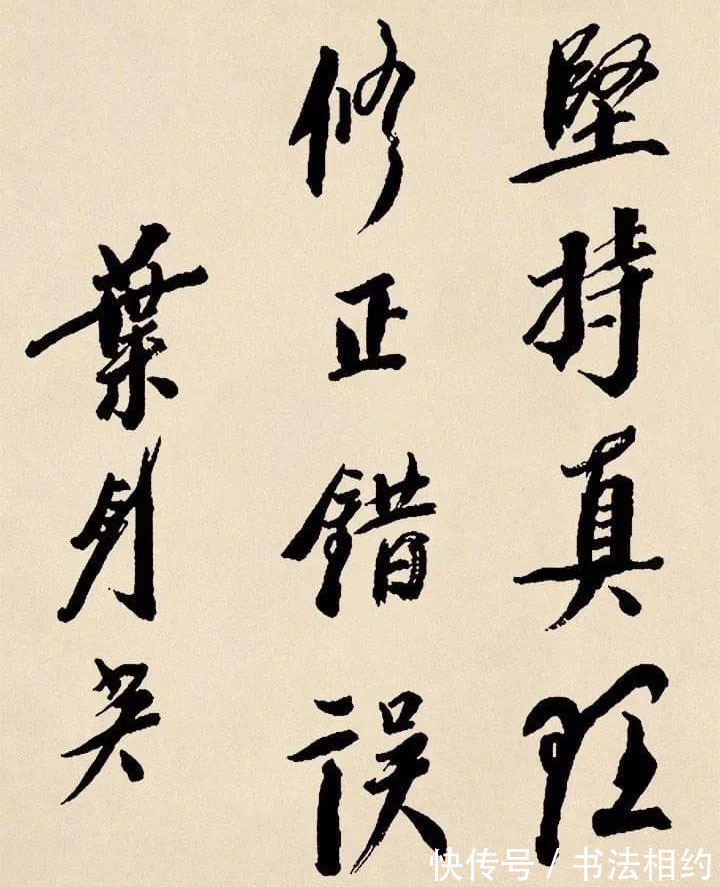 堅持真理
修正错误
葉剑英
快传号/书法相约